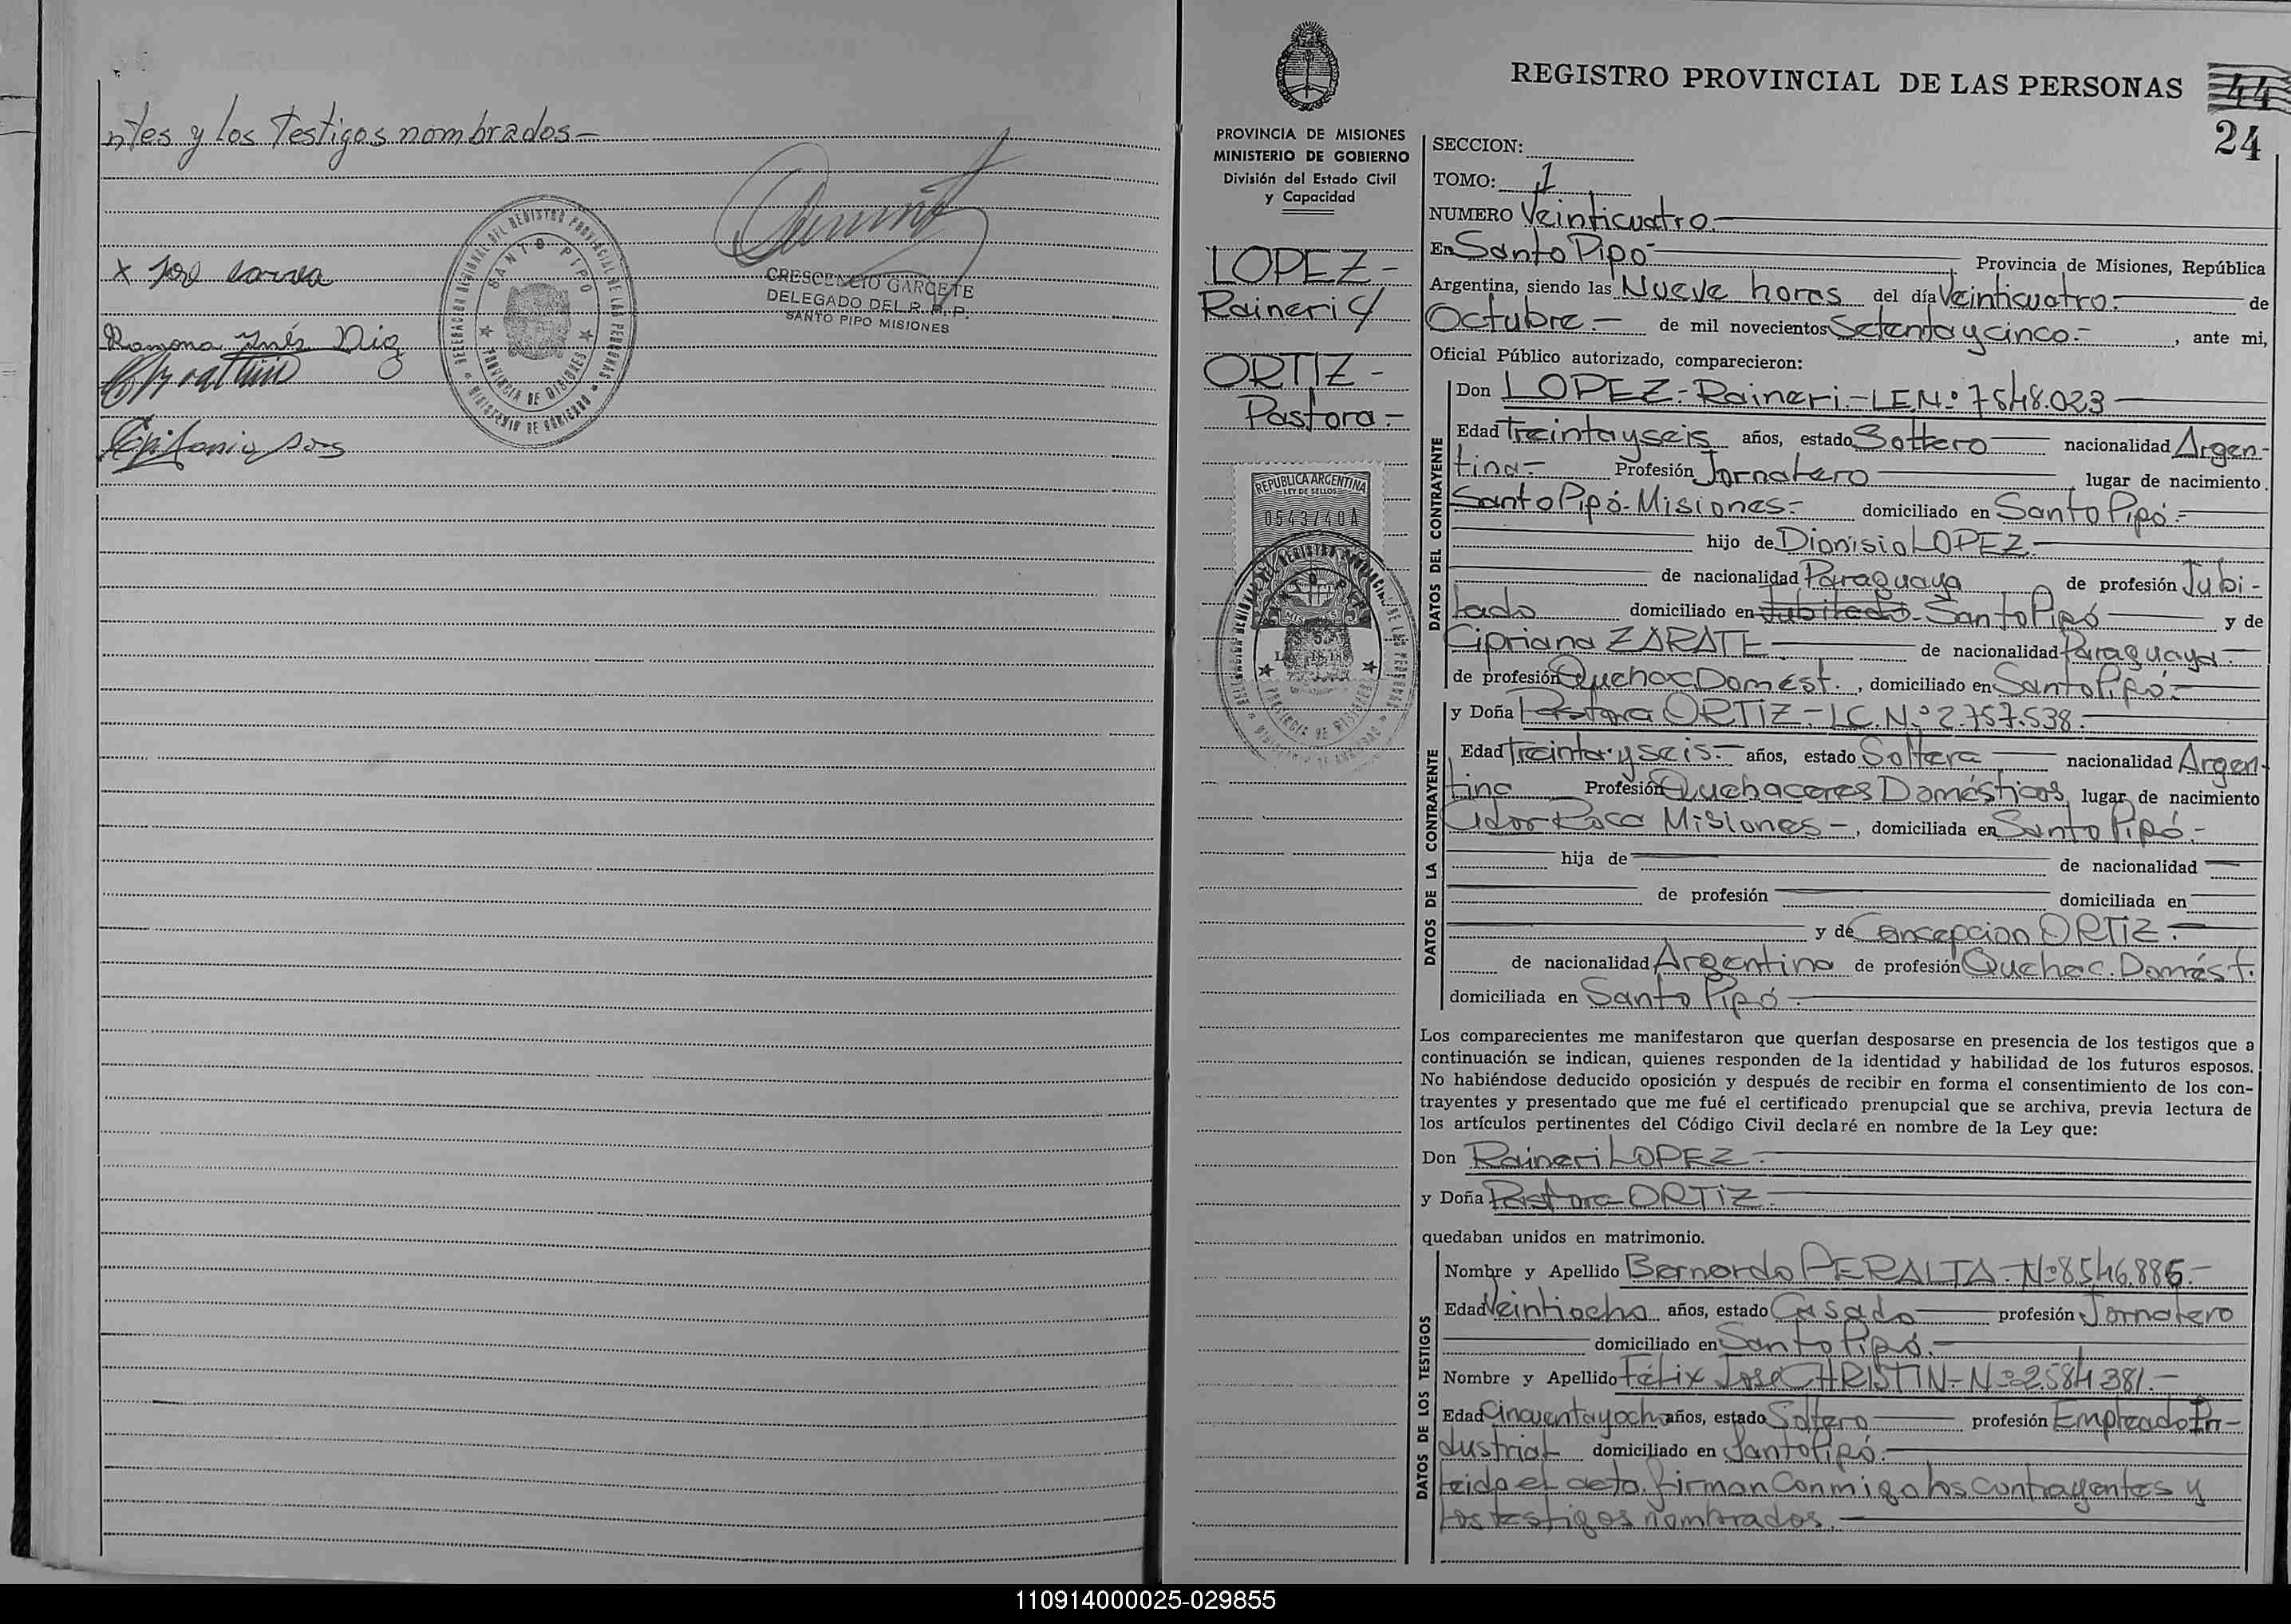 ntes y los Testigos nombrados.-
x José Correa
Ramona Inés Diaz
Epifanio
DELEGACION REGIONAL DEL REGISTRO PROVINCIAL DE LAS PERSONAS
SANTO PIPO
PROVINCIA DE MISIONES
MINISTERIO DE GOBIERNO
CRESCENCIO GARCETE
DELEGADO DEL R. P. P.
SANTO PIPO MISIONES
REGISTRO PROVINCIAL DE LAS PERSONAS
44
24
PROVINCIA DE MISIONES
MINISTERIO DE GOBIERNO
División del Estado Civil
y Capacidad
LOPEZ-
Raineri y
ORTIZ-
Pastora.-
REPUBLICA ARGENTINA
LEY DE SELLOS
0543740A
SECCION:
TOMO: 1
NUMERO Veinticuatro.-
En Santo Pipó- Provincia de Misiones, República
Argentina, siendo las Nueve horas del día Veinticuatro.- de
Octubre.- de mil novecientos Setenta y cinco.- , ante mi,
Oficial Público autorizado, comparecieron:
DATOS DEL CONTRAYENTE
Don LOPEZ.- Raineri.- L.E.Nº 7.548.023
Edad Treinta y seis años, estado Soltero nacionalidad Argen-
tina- Profesión Jornalero lugar de nacimiento
Santo Pipó- Misiones.- domiciliado en Santo Pipó.-
hijo de Dionisio LOPEZ.-
de nacionalidad Paraguaya de profesión Jubi-
lado domiciliado en Jubilado- Santo Pipó y de
Cipriana ZARATE de nacionalidad Paraguaya.-
de profesión Quehac Domést. , domiciliado en Santo Pipó.-
DATOS DE LA CONTRAYENTE
y Doña Pastora ORTIZ.- L.C.N.º 2.757.538.-
Edad Treinta y seis.- años, estado Soltera nacionalidad Argen-
tina Profesión Quehaceres Domésticos, lugar de nacimiento
Gdor Roca Misiones-, domiciliada en Santo Pipó.-
hija de de nacionalidad
de profesión domiciliada en
y de Concepcion ORTIZ.-
de nacionalidad Argentina de profesión Quehac. Domést.
domiciliada en Santo Pipó.-
Los comparecientes me manifestaron que querían desposarse en presencia de los testigos que a
continuación se indican, quienes responden de la identidad y habilidad de los futuros esposos.
No habiéndose deducido oposición y después de recibir en forma el consentimiento de los con-
trayentes y presentado que me fué el certificado prenupcial que se archiva, previa lectura de
los artículos pertinentes del Código Civil declaré en nombre de la Ley que:
Don Raineri LOPEZ.-
y Doña Pastora ORTIZ.-
quedaban unidos en matrimonio.
DATOS DE LOS TESTIGOS
Nombre y Apellido Bernardo PERALTA- Nº 8.546.886.-
Edad Veintiocho años, estado Casado profesión Jornalero
domiciliado en Santo Pipó.-
Nombre y Apellido Félix José CHRISTIN.- Nº 2.584.381.-
Edad Cincuenta y ocho años, estado Soltero profesión Empleado In-
dustrial domiciliado en Santo Pipó.-
Leida el acta firman Conmigo los Contrayentes y
los testigos nombrados.-
110914000025-029855